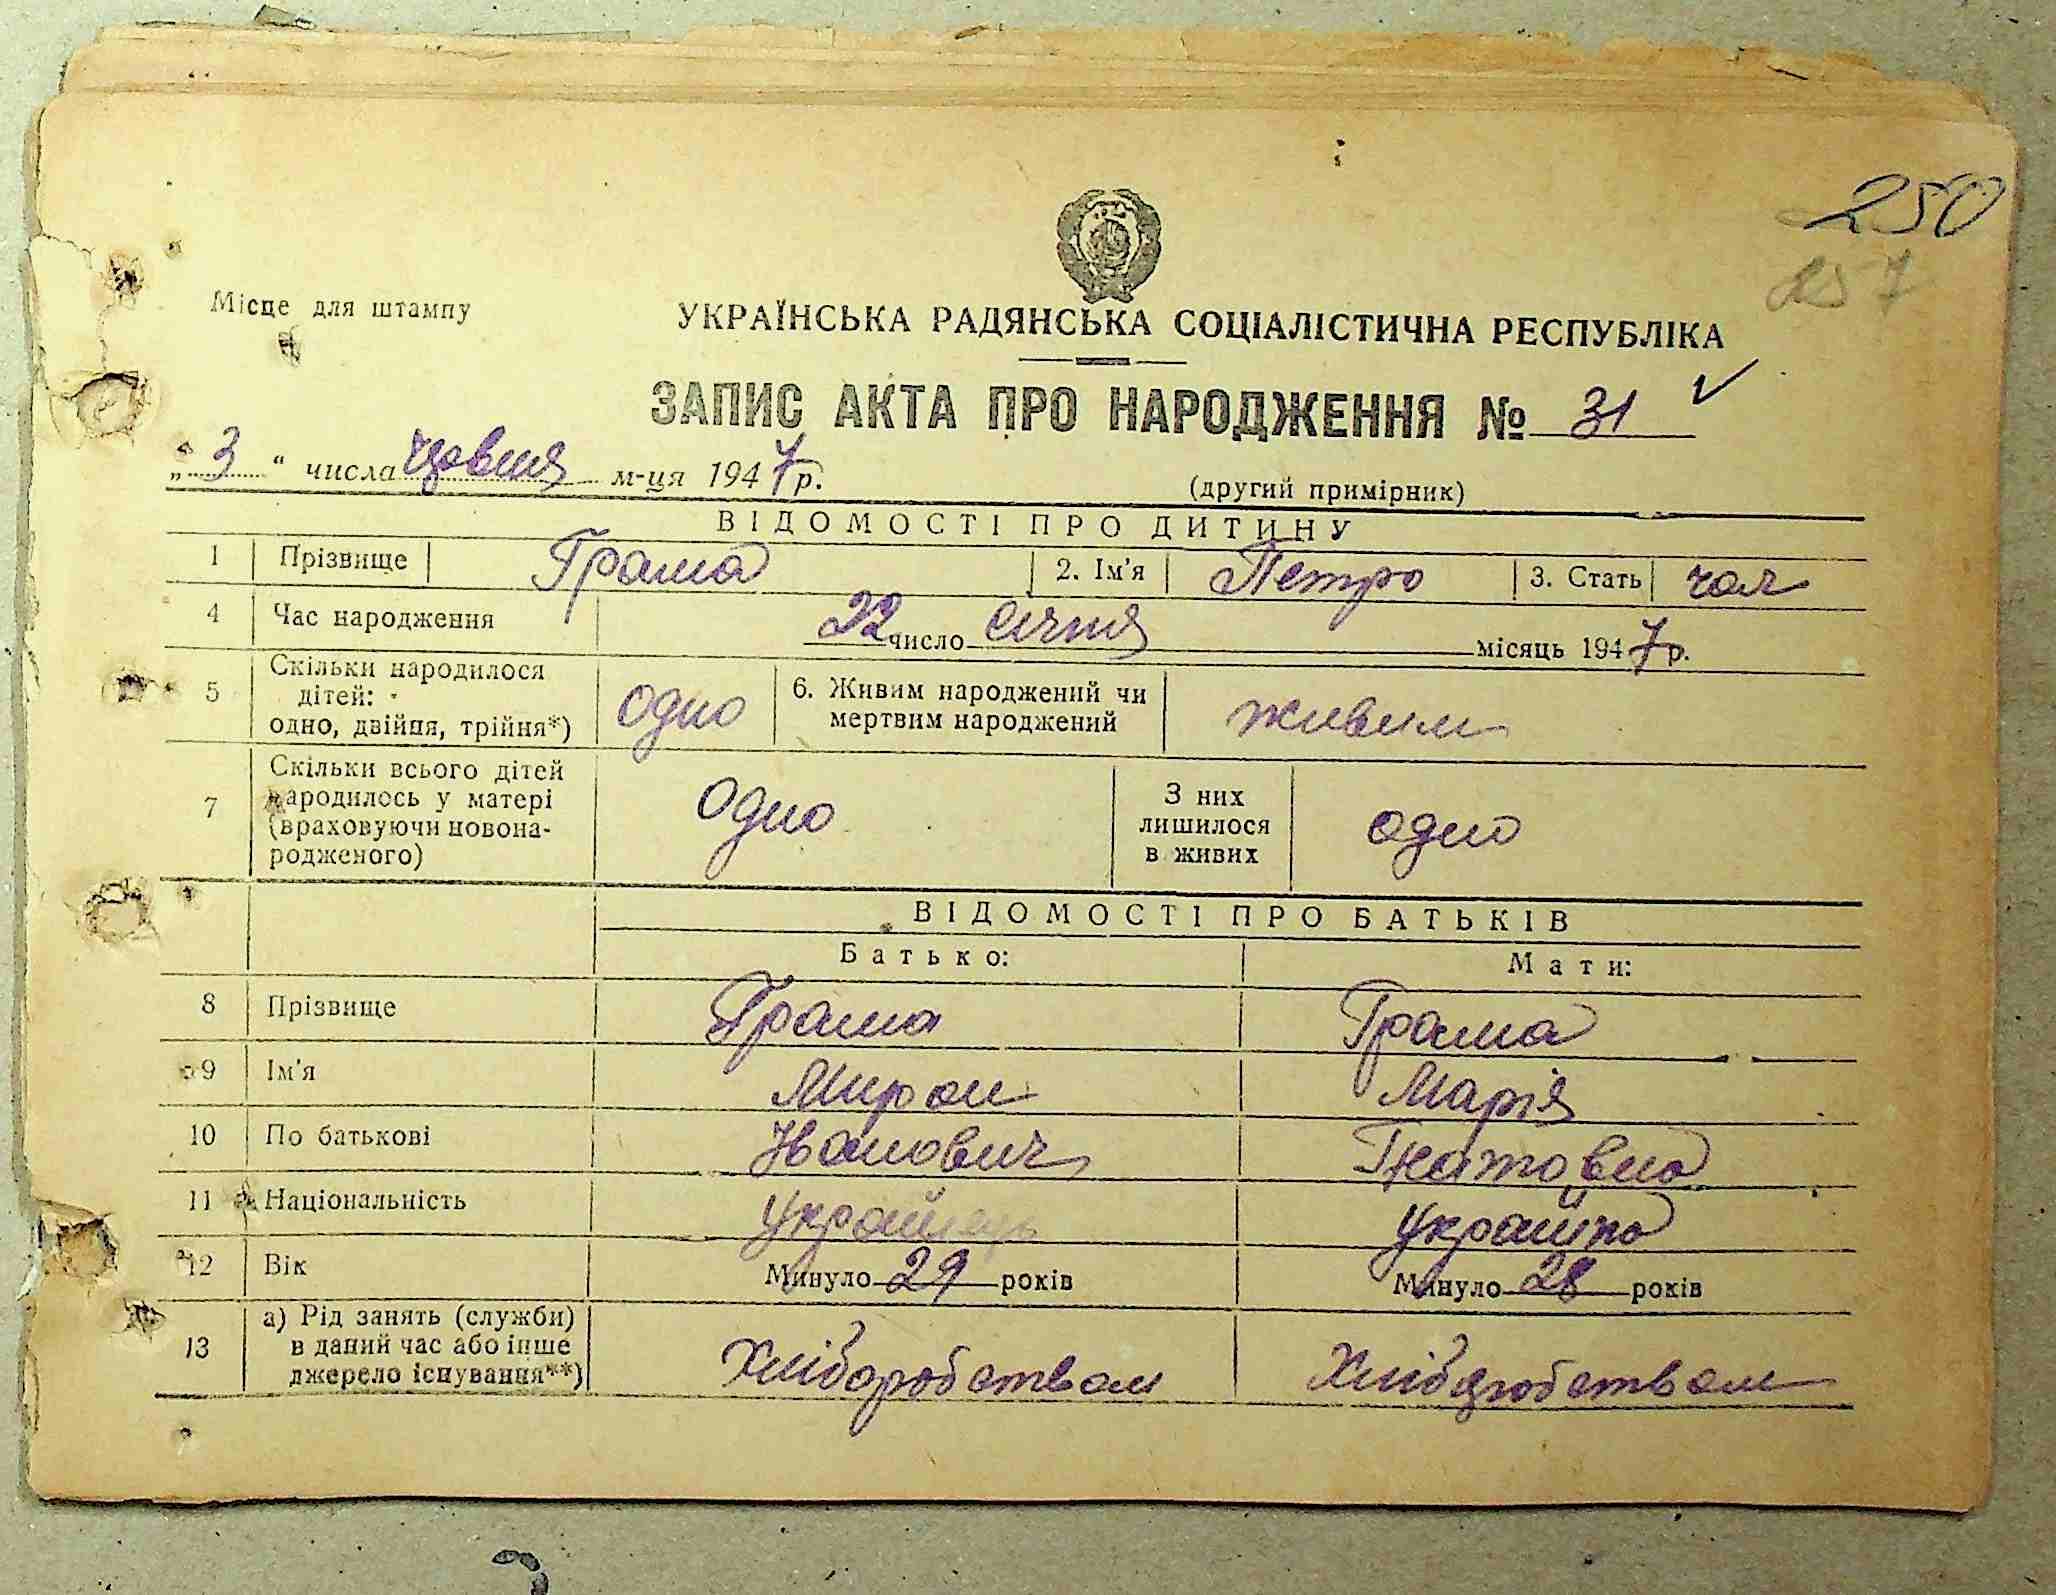 250
257
Місце для штампу
УКРАЇНСЬКА РАДЯНСЬКА СОЦІАЛІСТИЧНА РЕСПУБЛІКА
ЗАПИС АКТА ПРО НАРОДЖЕННЯ № 31
„3“ числа червня м-ця 1947 р.
(другий примірник)
ВІДОМОСТІ ПРО ДИТИНУ
1 Прізвище Грама 2. Ім'я Петро 3. Стать чол
4 Час народження 22 число січня місяць 1947 р.
5 Скільки народилося
дітей:
одно, двійня, трійня*) одно 6. Живим народжений чи
мертвим народжений живим
7 Скільки всього дітей
народилось у матері
(враховуючи новона-
родженого) одно З них
лишилося
в живих одно
ВІДОМОСТІ ПРО БАТЬКІВ
Батько: Мати:
8 Прізвище Грама Грама
9 Ім'я Мирон Марія
10 По батькові Іванович Гнатовна
11 Національність українець українка
12 Вік Минуло 29 років Минуло 28 років
13 а) Рід занять (служби)
в даний час або інше
джерело існування**) Хліборобством Хліборобством